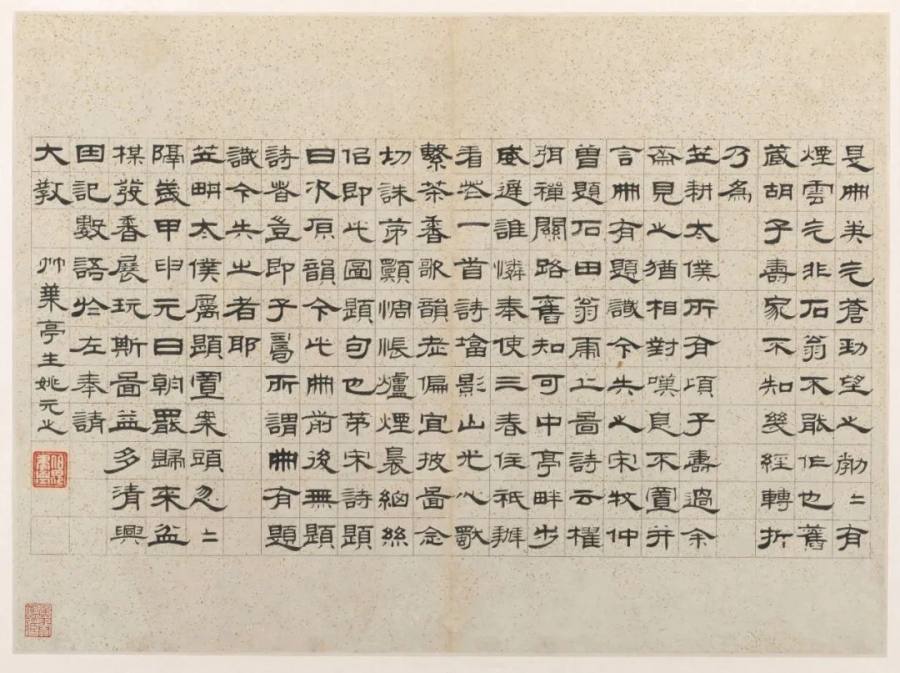 是冊英气蒼勁望之勃二有
煙雲气非石翁不能作也舊
藏胡子壽家不知幾經轉折
乃為
笠耕太僕所有項子壽過余
齋見之猶相對嘆息不置并
言冊有題識今失之宋牧仲
曾題石田翁雨止圖詩云櫂
弭禪關路舊知可中亭畔步
威遲誰憐奉使三春住祇辦
看花一首詩墖影山光心
繫茶香歌韻老偏宜披圖念
切誅茅願惆悵爐煙裊細絲
侶即此圖題句也第宋詩題
曰次原韻今此冊前後無題
詩者豈即子壽所謂冊有題
識今失之者耶
笠畊太僕屬題置案頭忽二
隔歲甲申元日朝罷歸來盆
楳發香展玩斯圖益多清興
因記數語於左奉請
大教 竹葉亭生姚元之